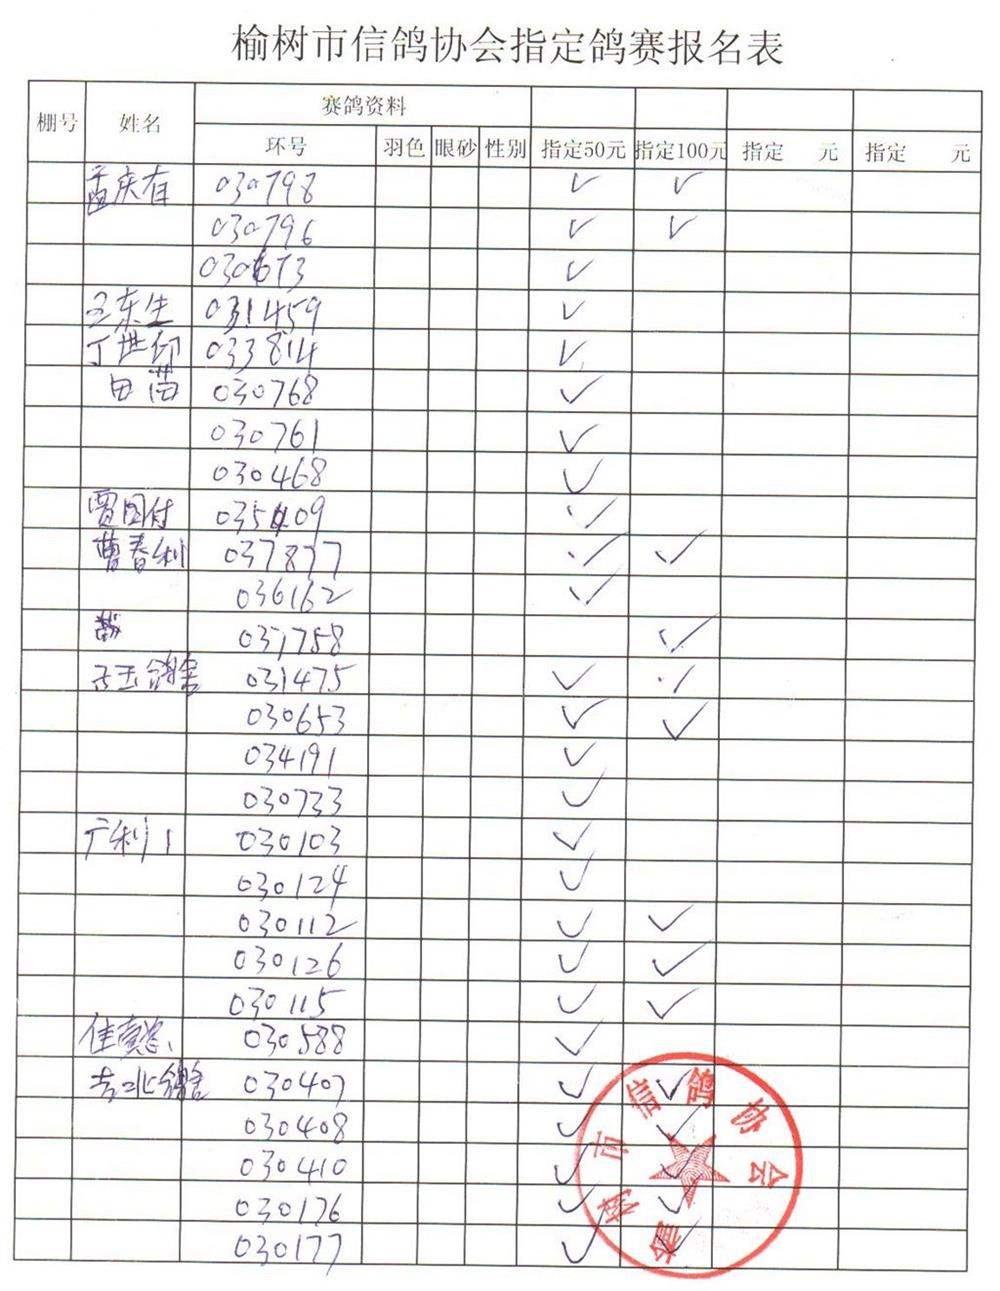 榆树市信鸽协会指定鸽赛报名表
棚号 姓名 赛鸽资料
环号 羽色 眼砂 性别 指定50元 指定100元 指定 元 指定 元
孟庆有 030798 ✓ ✓
030796 ✓ ✓
030673 ✓
王东生 031459 ✓
丁世 033814 ✓
田苗 030768 ✓
030761 ✓
030468 ✓
贾国付 035409 ✓
曹春利 037877 ✓ ✓
036162 ✓
031758 ✓
玉鸽舍 031475 ✓ ✓
030653 ✓ ✓
034191 ✓
030733 ✓
广利 030103 ✓
030124 ✓
030112 ✓ ✓
030126 ✓ ✓
030115 ✓ ✓
佳 030588 ✓
北鸽舍 030407 ✓ ✓
030408 ✓ ✓
030410 ✓ ✓
030176 ✓ ✓
030177 ✓ ✓
榆树市信鸽协会